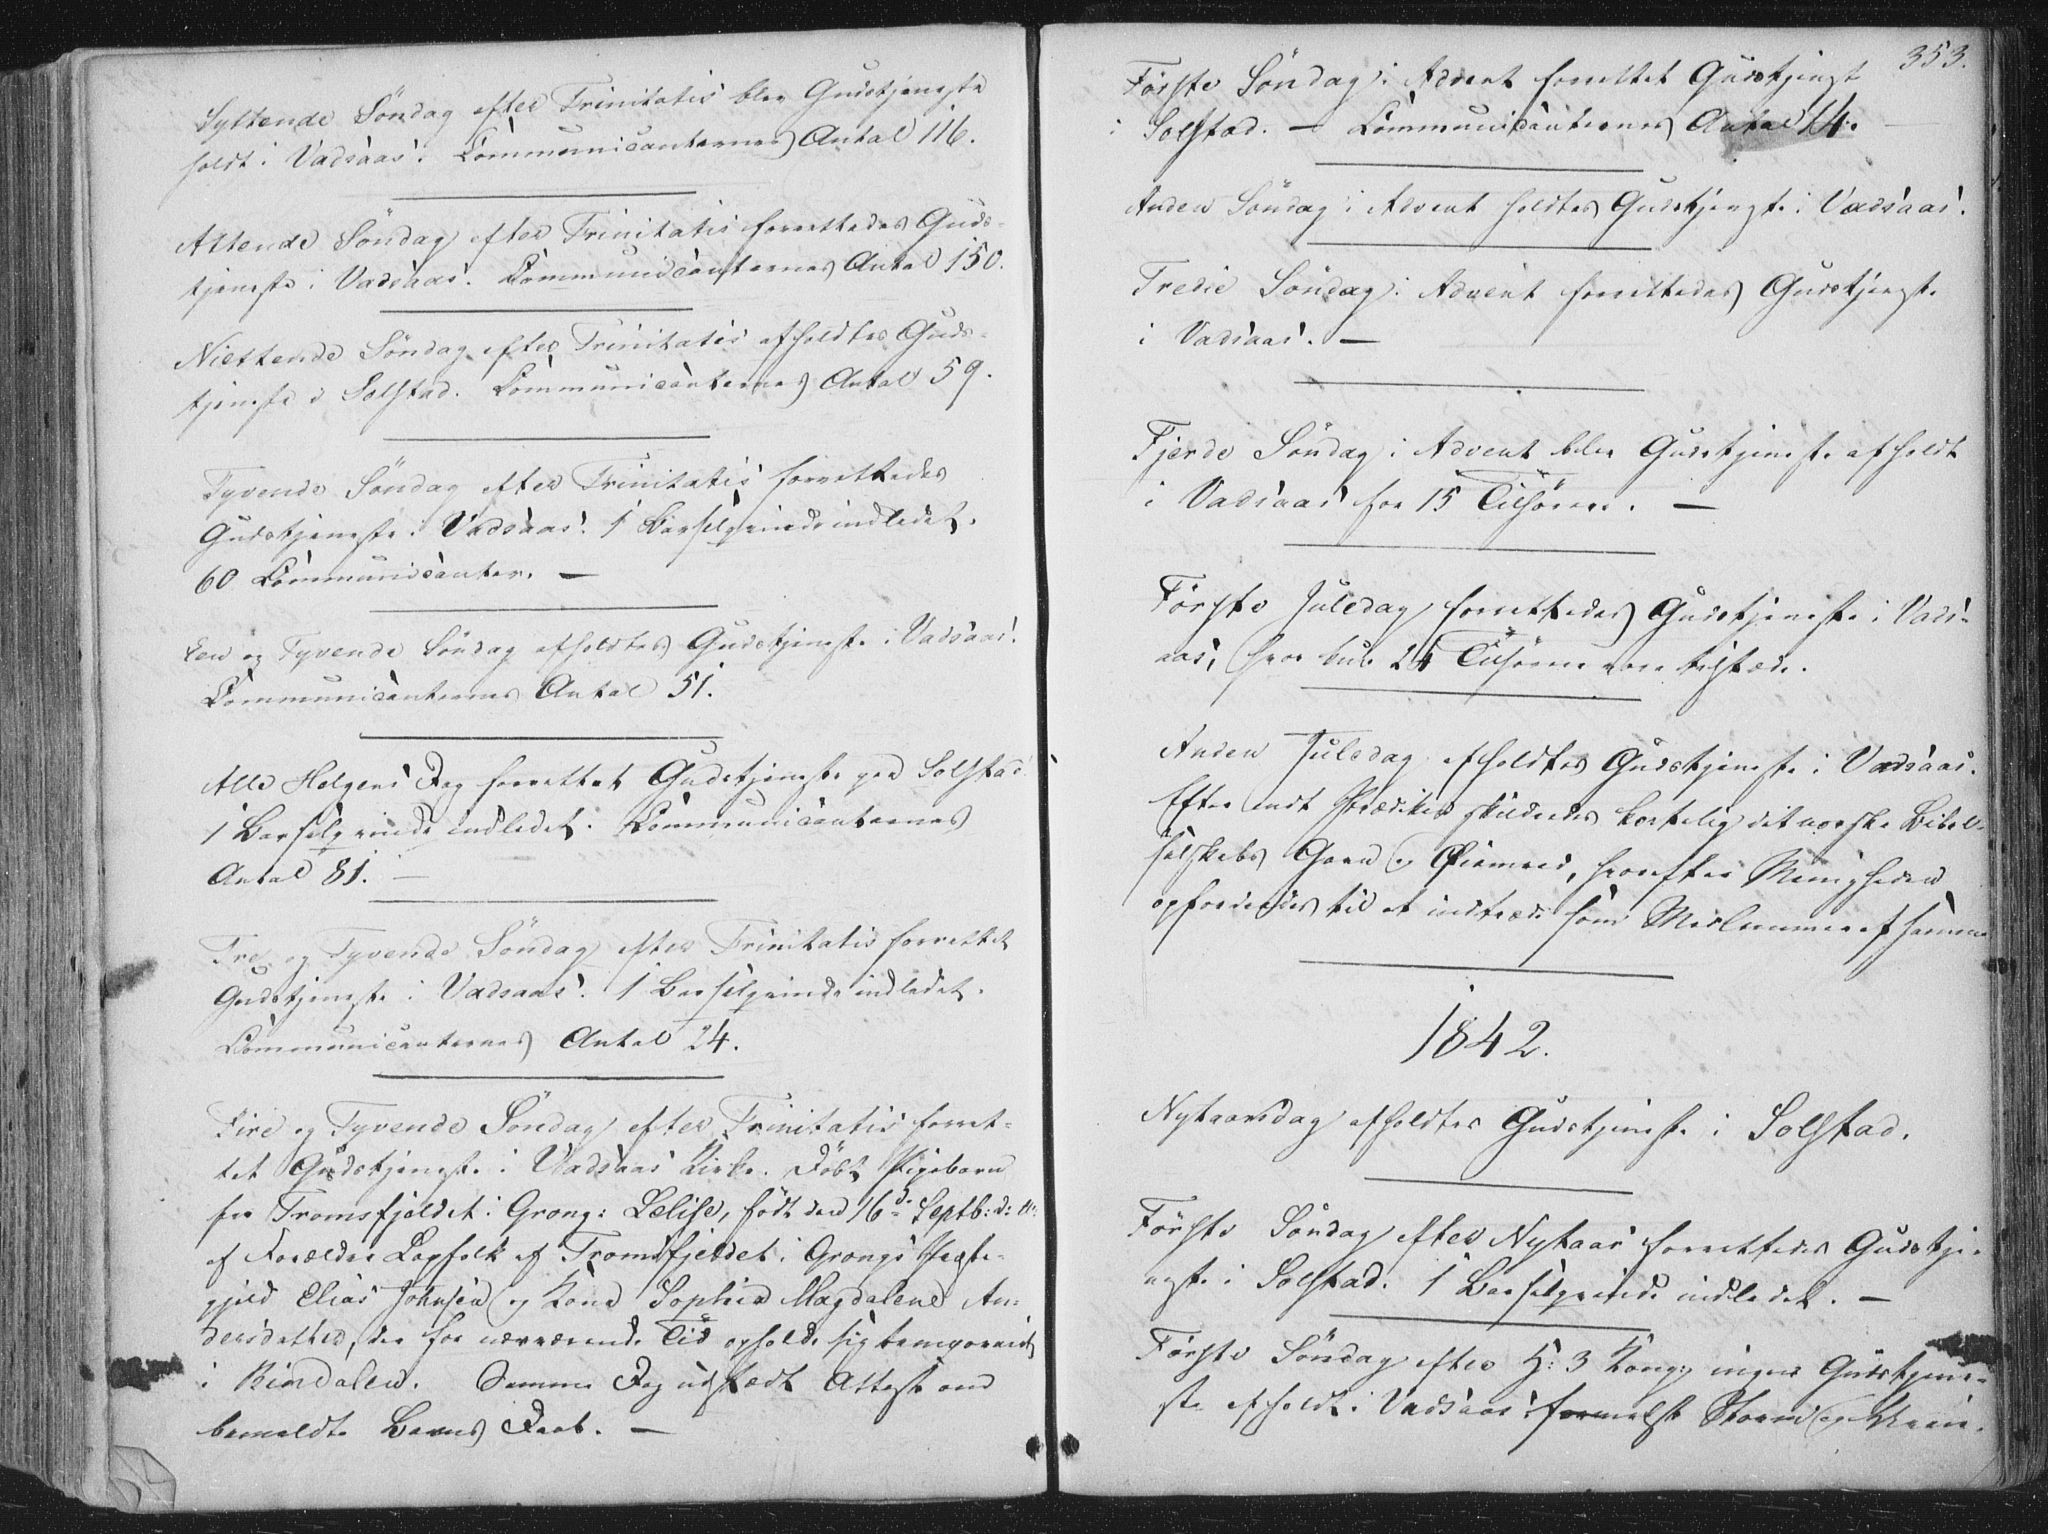 Syttende Söndag efter Trinitatis blev Gudstjeneste
holdt i Vadsaas. Communicanternes Antal 116.
Attende Söndag efter Trinitatis forrettedes Guds-
tjeneste i Vadsaas. Communicanternes Antal 150.
Nittende Söndag efter Trinitatis afholdtes Guds-
tjeneste i Solstad. Communicanternes Antal 59.
Tyvende Söndag efter Trinitatis forrettedes
Gudstjeneste i Vadsaas. 1 Barselqvinde indledet.
60 Communicanter. —
Een og Tyvende Söndag afholdtes Gudstjeneste i Vadsaas.
Communicanternes Antal 51.
Alle Helgens Dag forrettet Gudstjeneste paa Solstad
1 Barselqvinde indledet. Communicanternes
Antal 81. —
Tre og Tyvende Söndag efter Trinitatis forrettet
Gudstjeneste i Vadsaas. 1 Barselqvinde indledet.
Communicanternes Antal 24.
Fire og Tyvende Söndag efter Trinitatis forret-
tet Gudstjeneste i Vadsaas Kirke. Döbt Pigebarn
fra Tromsfjeldet i Grong: Lælise, födt den 16de Septb: d: A:
af Forældre Lapfolk af Tromsfjeldet i Grongs Præste-
gjeld Elias Johnsen og Kone Sophia Magdalene An-
dersdatter, der for nærværende Tid opholde sig temporairt
i Bindalen. Samme Dag udstædt Attest om
bemeldte Barns Daab. —
353.
Förste Söndag i Advent forrettet Gudstjenst
i Solstad. — Communicanternes Antal 14. —
Anden Söndag i Advent holdtes Gudstjenste i Vadsaas.
Tredie Söndag i Advent forrettedes Gudstjenste
i Vadsaas. —
Fjerde Söndag i Advent blev Gudstjeneste afholdt
i Vadsaas for 15 Tilhörere. —
Förste Juledag forrettedes Gudstjeneste i Vads-
aas, hvor kun 24 Tilhörere vare tilstæde.
Anden Juledag afholdtes Gudstjeneste i Vadsaas.
Efter endt Prædiken skildredes kortelig det norske Bibel-
selskabs Gavn og Öiemeed, hvorefter Menigheden
opfordredes til at indtræde som Medlemmer af samme
1842.
Nytaarsdag afholdtes Gudstjeneste i Solstad.
Förste Söndag efter Nytaar forrettedes Gudstje-
neste i Solstad. 1 Barselqvinde indledet. —
Förste Söndag efter H: 3 Kong: ingen Gudstjene-
ste afholdt i Vadsaas formedelst Storm og